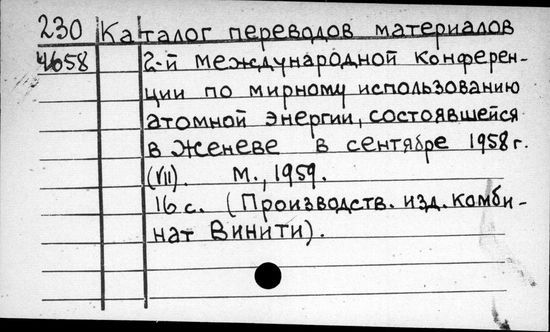 230 Каталог переводов материалов
4658 2-й международной конферен-
ции по мирному использованию
атомной энергии, состоявшейся
в Женеве в сентябре 1958 г.
(VII). М., 1959.
16 с. (Производств. изд. комби-
нат Винити).